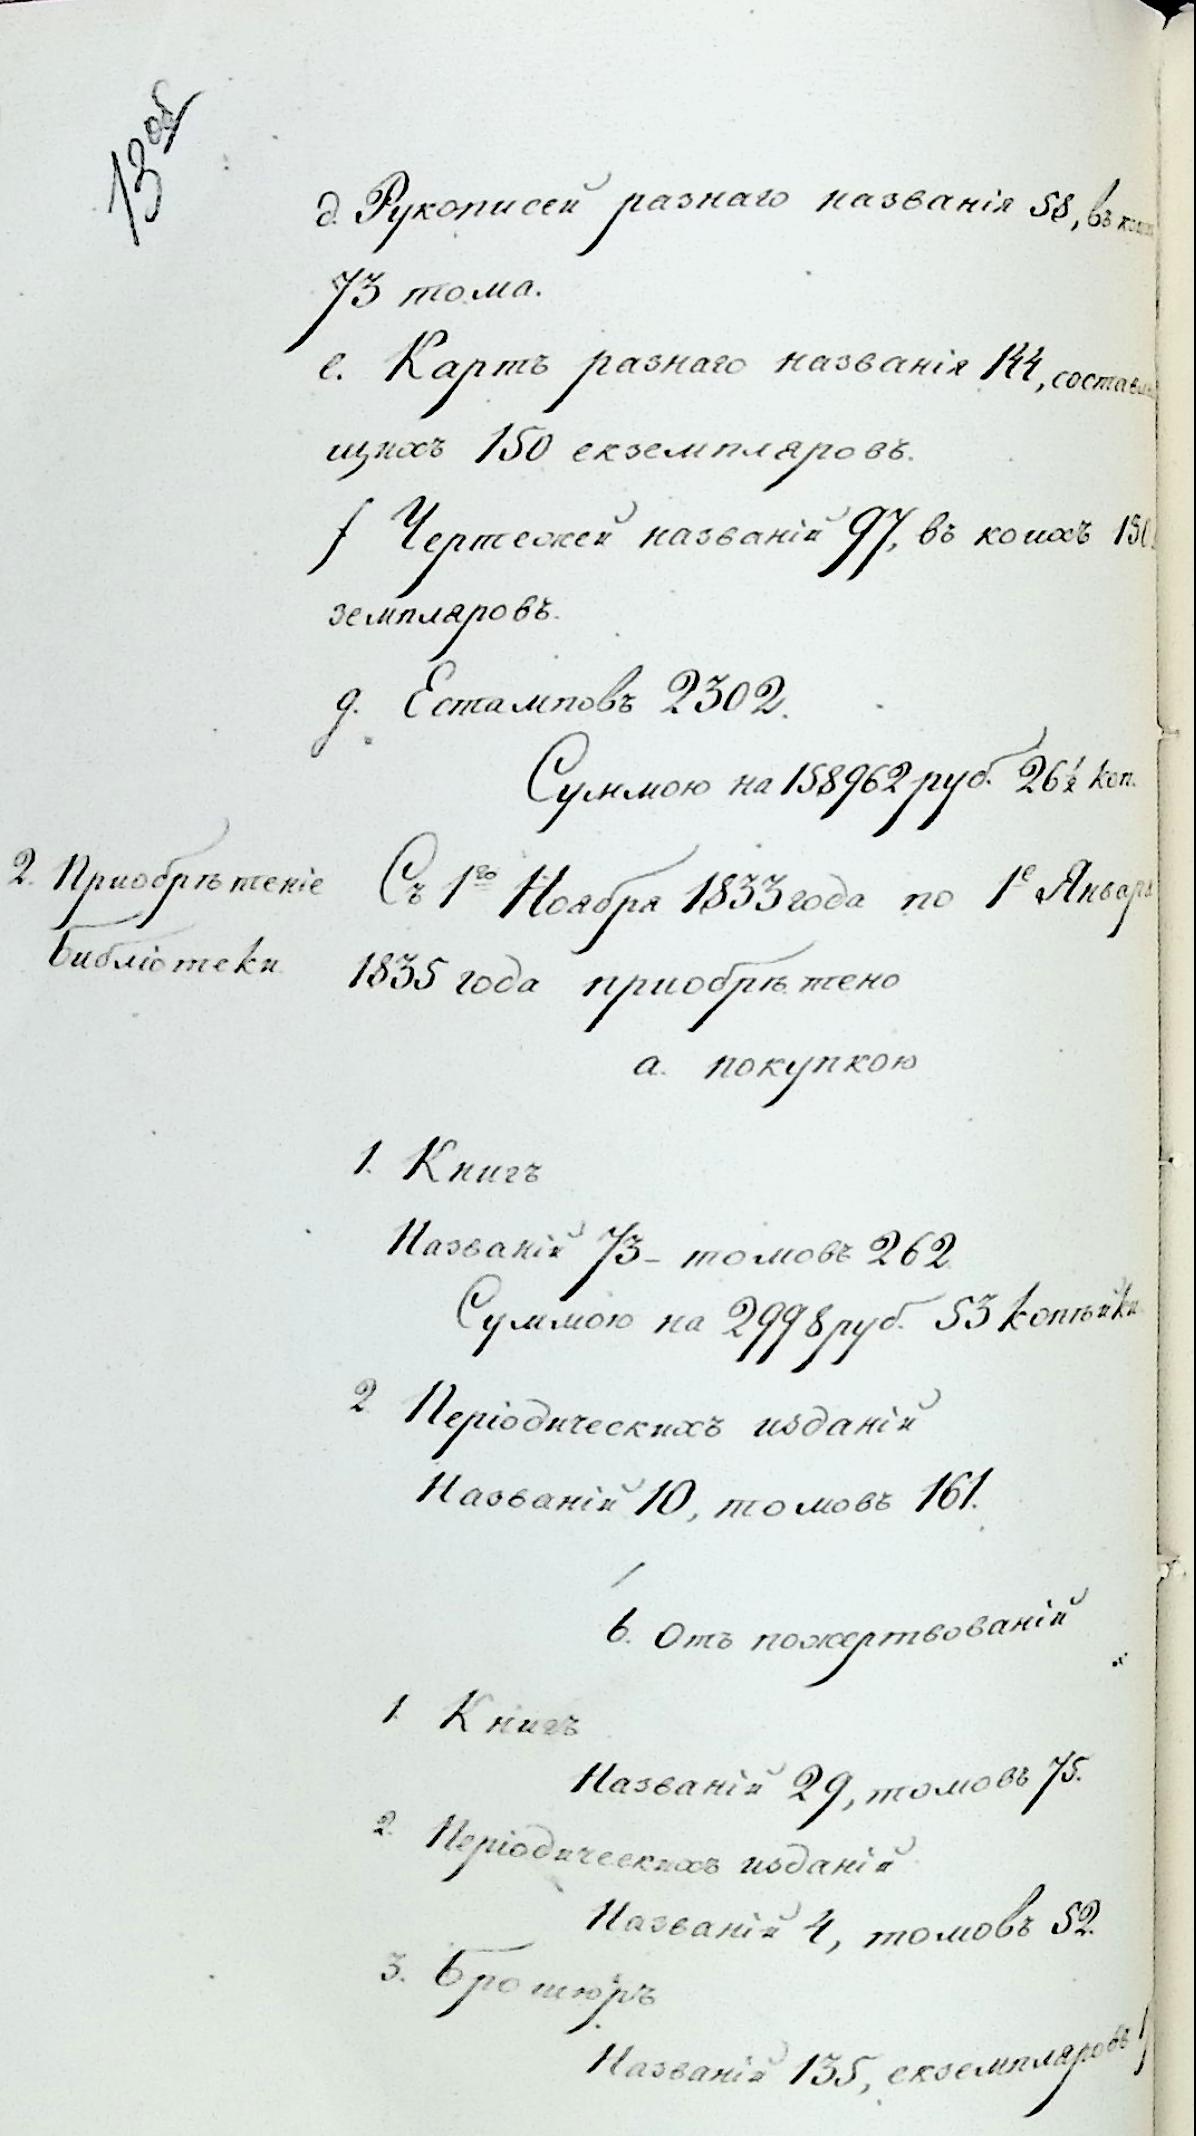 13об
д. Рукописей разнаго названія 58, въ
73 тома.
е. Картъ разнаго названія 144,
щихъ 150 екземпляровъ.
f Чертежей названій 97, въ коихъ
земпляровъ.
g. Естамповъ 2302.
Суммою на 158962 руб. 26½ коп.
2. Приобрѣтеніе
библіотеки
Съ 1го Ноября 1833 года по 1е Январь
1835 года приобрѣтено
а. покупкою
1. Книгъ
Названій 73 – томовъ 262
Суммою на 2998 руб. 53 копѣйки
2 Періодическихъ изданій
Названій 10, томовъ 161.
b. Отъ пожертвованій
1. Книгъ
Названій 29, томовъ 75.
2. Періодическихъ изданій
Названій 4, томовъ 52.
3. Брошюръ
Названій 135, екземпляровъ